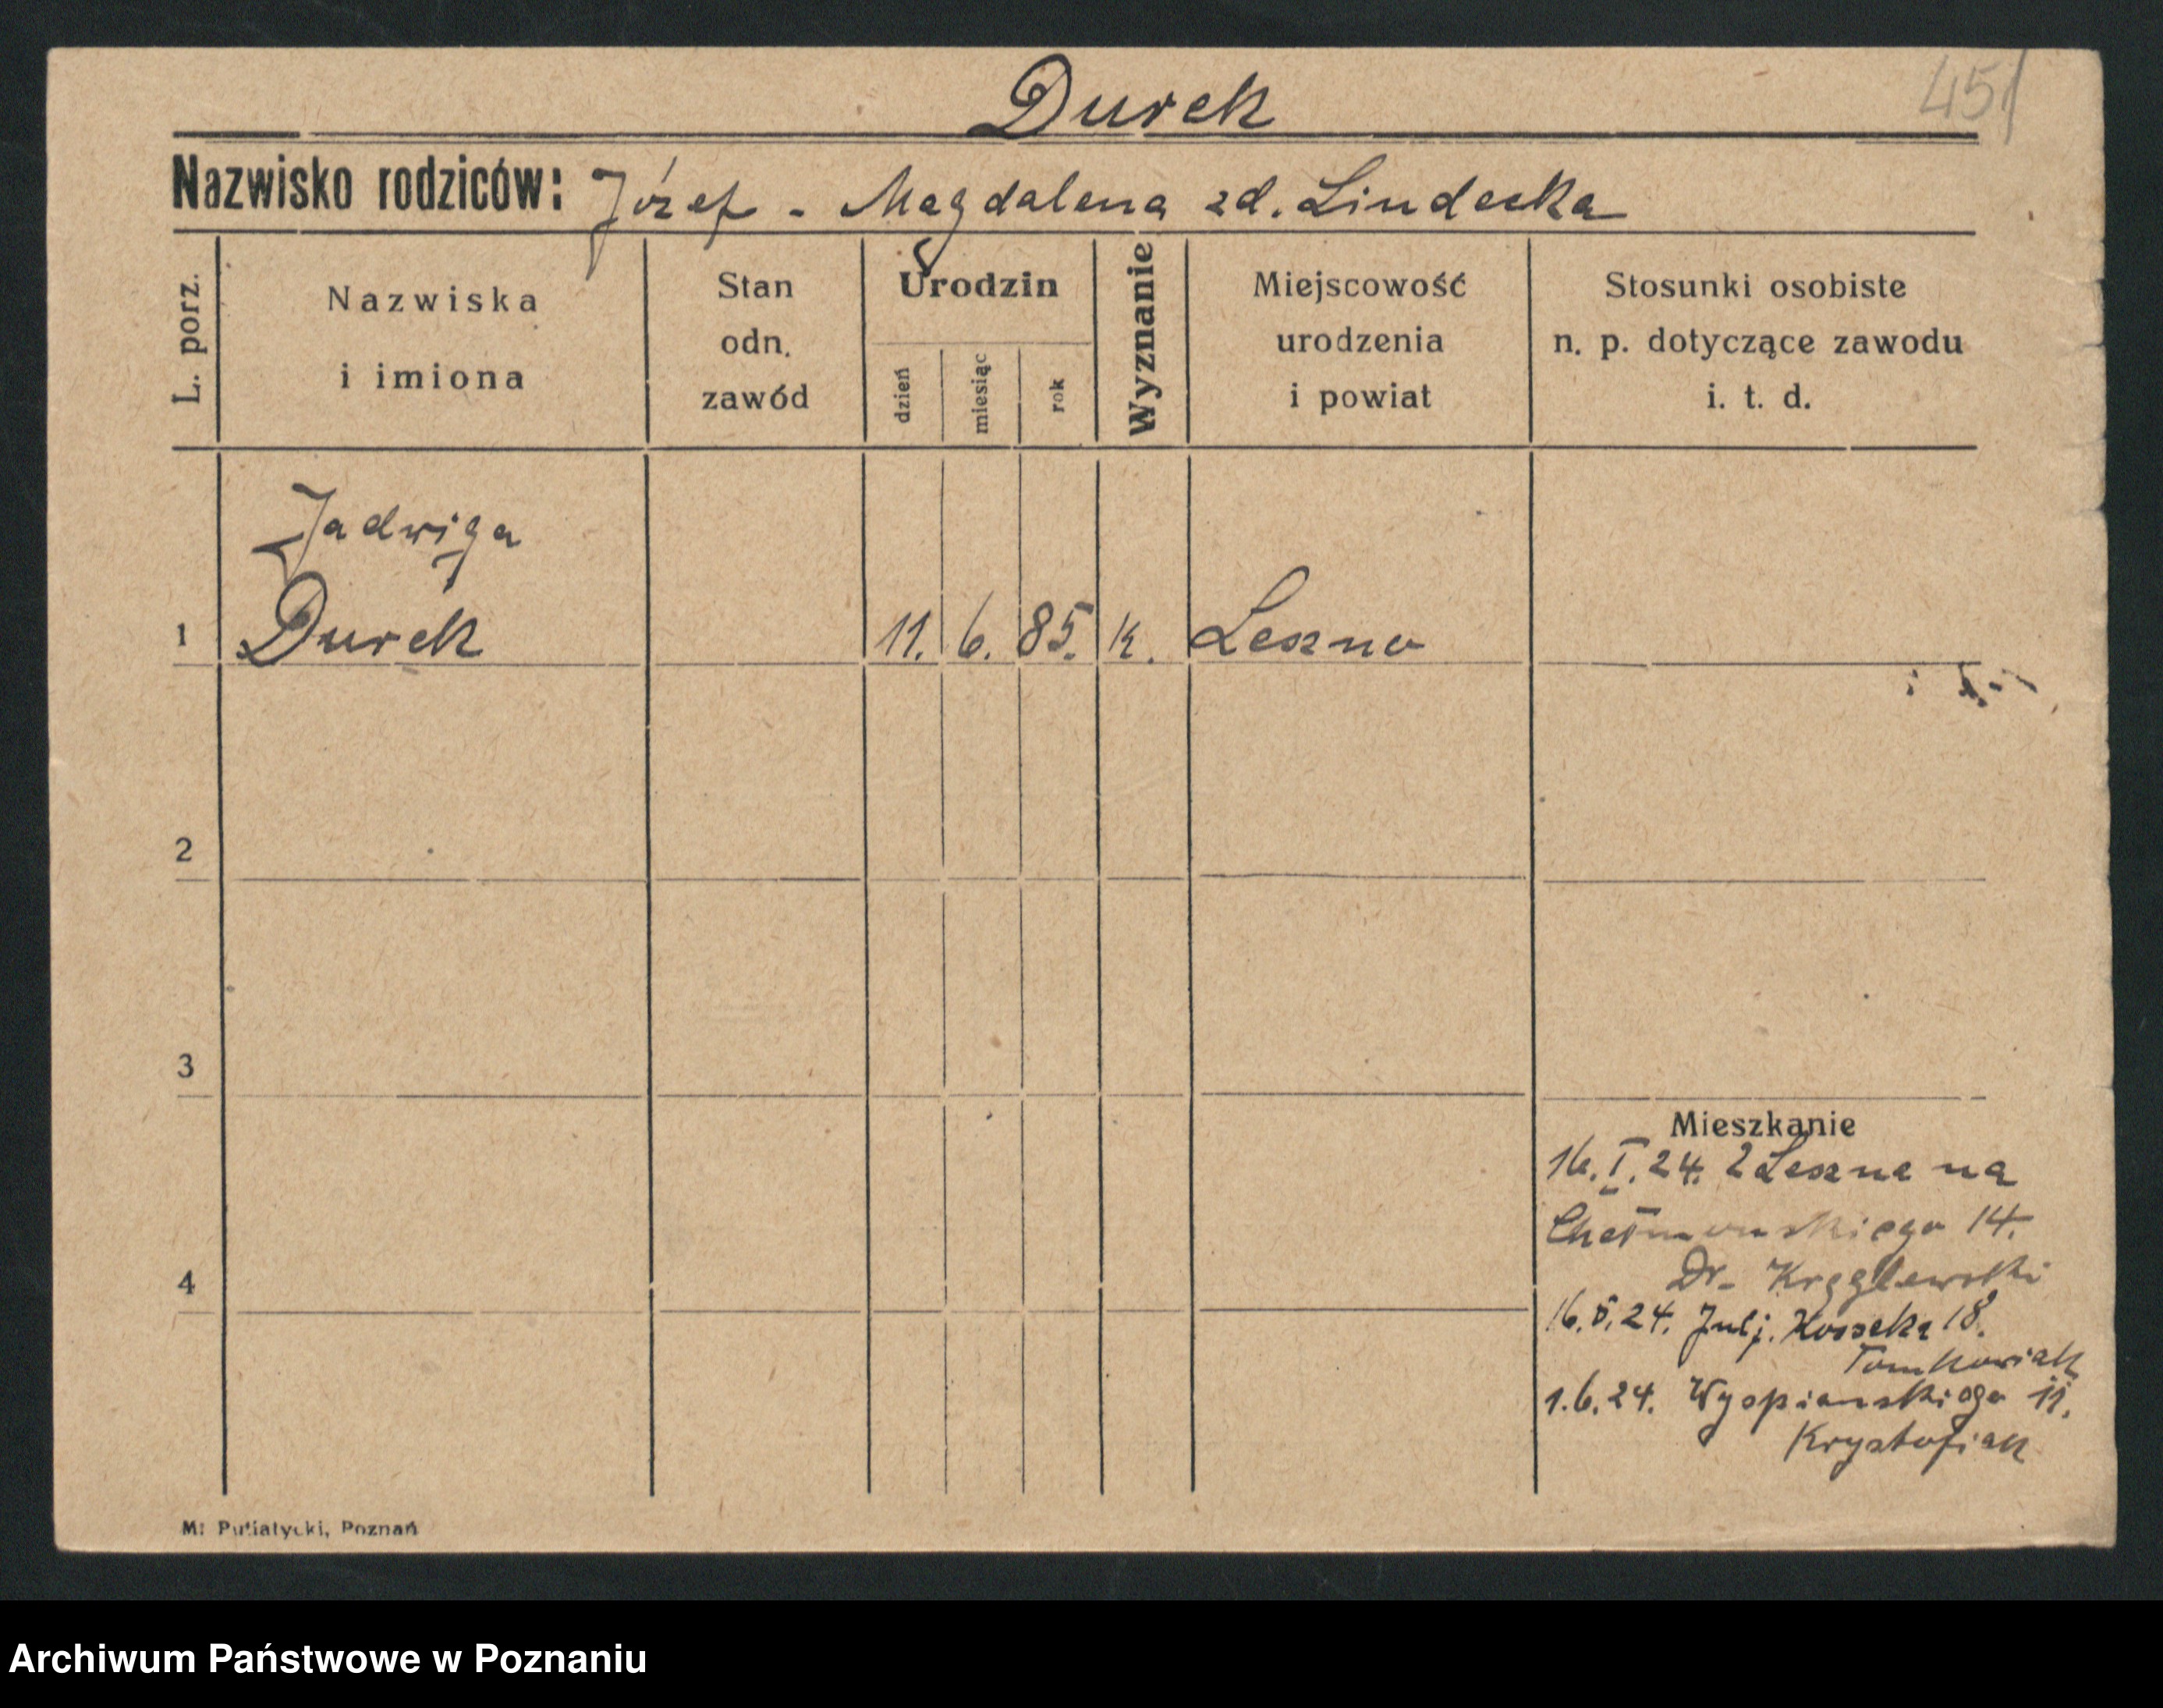 Durek
451
Nazwisko rodziców: Józef - Magdalena zd. Lindecka
L. porz.
Nazwiska
i imiona
Stan
odn.
zawód
Urodzin
dzień
miesiąc
rok
Wyznanie
Miejscowość
urodzenia
i powiat
Stosunki osobiste
n. p. dotyczące zawodu
i. t. d.
Jadwiga
1 Durek 11. 6. 85. k. Leszno
2
3
Mieszkanie
16.I.24. z Leszna na
Chełmońskiego 14.
Dr. Kręglewski
4
16.5.24. Julj. Kossaka 18.
Tomkowiak
1.6.24. Wyspiańskiego 11.
Krystofiak
M: Putiatycki, Poznań
Archiwum Państwowe w Poznaniu